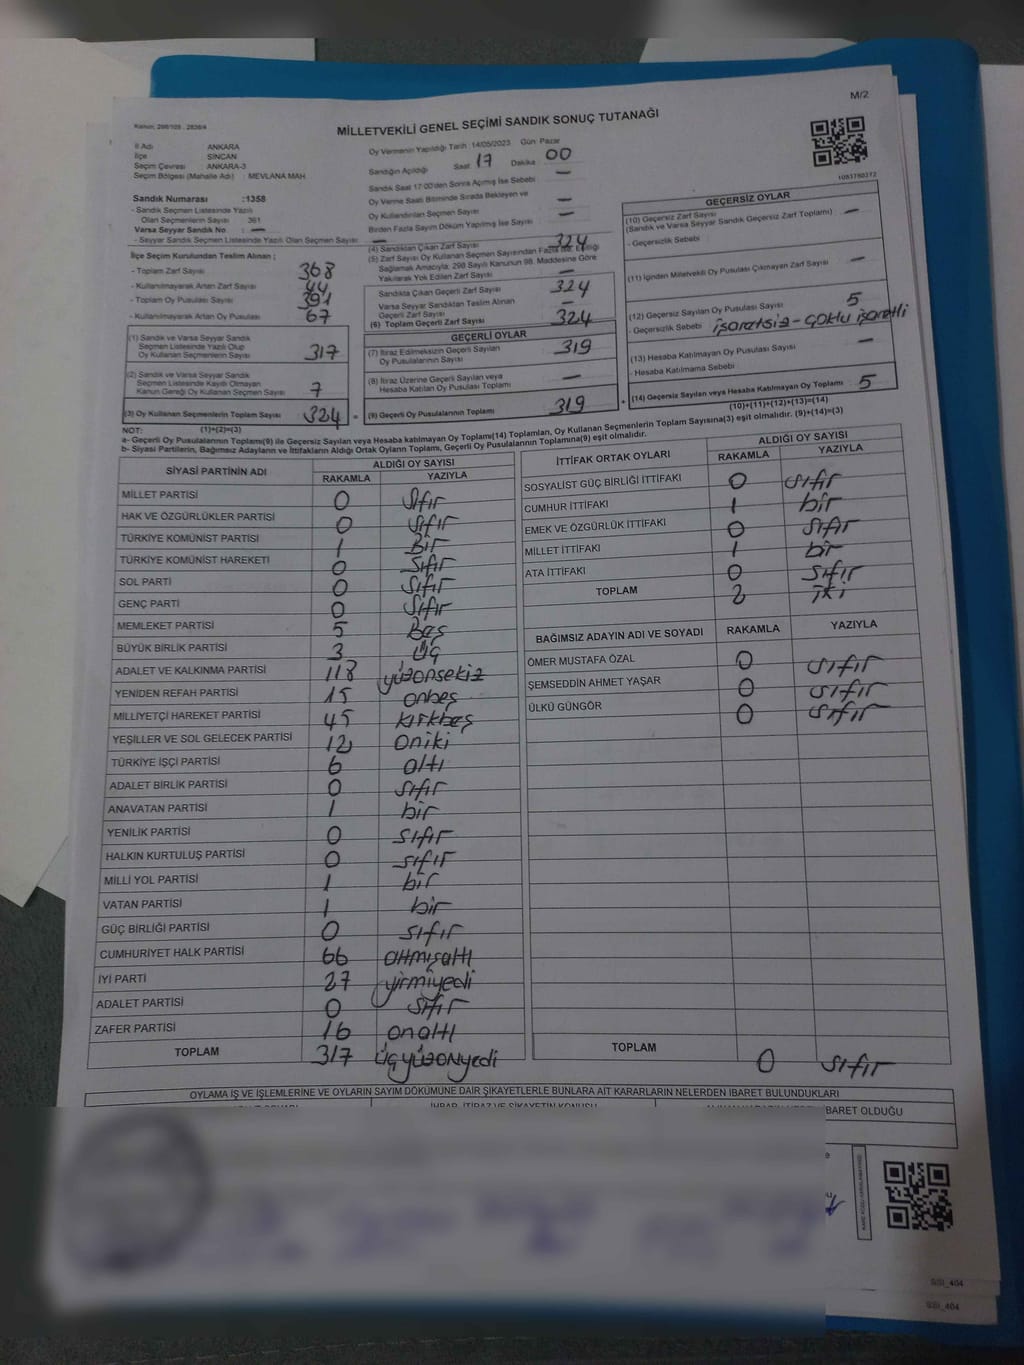 M/2
Kanun, 298/105 - 2839/4
MİLLETVEKİLİ GENEL SEÇİMİ SANDIK SONUÇ TUTANAĞI
İl Adı ANKARA
İlçe SİNCAN
Seçim Çevresi ANKARA-3
Seçim Bölgesi (Mahalle Adı) : MEVLANA MAH
Sandık Numarası :1358
- Sandık Seçmen Listesinde Yazılı
Olan Seçmenlerin Sayısı : 361
Varsa Seyyar Sandık No : —
- Seyyar Sandık Seçmen Listesinde Yazılı Olan Seçmen Sayısı : —
Oy Vermenin Yapıldığı Tarih :14/05/2023 Gün: Pazar
Sandığın Açıldığı Saat 17 Dakika 00
Sandık Saat 17:00'den Sonra Açılmış İse Sebebi —
Oy Verme Saati Bitiminde Sırada Bekleyen ve
Oy Kullandırılan Seçmen Sayısı —
Birden Fazla Sayım Döküm Yapılmış İse Sayısı —
1083780372
İlçe Seçim Kurulundan Teslim Alınan ;
- Toplam Zarf Sayısı 368
- Kullanılmayarak Artan Zarf Sayısı 44
- Toplam Oy Pusulası Sayısı 391
- Kullanılmayarak Artan Oy Pusulası 67
(1) Sandık ve Varsa Seyyar Sandık
Seçmen Listesinde Yazılı Olup
Oy Kullanan Seçmenlerin Sayısı 317
(2) Sandık ve Varsa Seyyar Sandık
Seçmen Listesinde Kaydı Olmayan
Kanun Gereği Oy Kullanan Seçmen Sayısı 7
(3) Oy Kullanan Seçmenlerin Toplam Sayısı 324
(4) Sandıktan Çıkan Zarf Sayısı 324
(5) Zarf Sayısı Oy Kullanan Seçmen Sayısından Fazla ise, Eşitliği
Sağlamak Amacıyla, 298 Sayılı Kanunun 98. Maddesine Göre
Yakılarak Yok Edilen Zarf Sayısı —
Sandıkta Çıkan Geçerli Zarf Sayısı 324
Varsa Seyyar Sandıktan Teslim Alınan
Geçerli Zarf Sayısı —
(6) Toplam Geçerli Zarf Sayısı 324
GEÇERLİ OYLAR
(7) İtiraz Edilmeksizin Geçerli Sayılan
Oy Pusulalarının Sayısı 319
(8) İtiraz Üzerine Geçerli Sayılan veya
Hesaba Katılan Oy Pusulası Toplamı —
= (9) Geçerli Oy Pusulalarının Toplamı 319
GEÇERSİZ OYLAR
(10) Geçersiz Zarf Sayısı
(Sandık ve Varsa Seyyar Sandık Geçersiz Zarf Toplamı) —
- Geçersizlik Sebebi
(11) İçinden Milletvekili Oy Pusulası Çıkmayan Zarf Sayısı —
(12) Geçersiz Sayılan Oy Pusulası Sayısı 5
- Geçersizlik Sebebi işaretsiz - çoklu işaretli
(13) Hesaba Katılmayan Oy Pusulası Sayısı —
- Hesaba Katılmama Sebebi
+ (14) Geçersiz Sayılan veya Hesaba Katılmayan Oy Toplamı 5
NOT: (1)+(2)=(3) (10)+(11)+(12)+(13)=(14)
a- Geçerli Oy Pusulalarının Toplamı(9) ile Geçersiz Sayılan veya Hesaba katılmayan Oy Toplamı(14) Toplamları, Oy Kullanan Seçmenlerin Toplam Sayısına(3) eşit olmalıdır. (9)+(14)=(3)
b- Siyasi Partilerin, Bağımsız Adayların ve İttifakların Aldığı Ortak Oyların Toplamı, Geçerli Oy Pusulalarının Toplamına(9) eşit olmalıdır.
SİYASİ PARTİNİN ADI ALDIĞI OY SAYISI
RAKAMLA YAZIYLA
MİLLET PARTİSİ 0 sıfır
HAK VE ÖZGÜRLÜKLER PARTİSİ 0 sıfır
TÜRKİYE KOMÜNİST PARTİSİ 1 Bir
TÜRKİYE KOMÜNİST HAREKETİ 0 sıfır
SOL PARTİ 0 sıfır
GENÇ PARTİ 0 sıfır
MEMLEKET PARTİSİ 5 Beş
BÜYÜK BİRLİK PARTİSİ 3 üç
ADALET VE KALKINMA PARTİSİ 118 yüzonsekiz
YENİDEN REFAH PARTİSİ 15 onbeş
MİLLİYETÇİ HAREKET PARTİSİ 45 kırkbeş
YEŞİLLER VE SOL GELECEK PARTİSİ 12 oniki
TÜRKİYE İŞÇİ PARTİSİ 6 altı
ADALET BİRLİK PARTİSİ 0 sıfır
ANAVATAN PARTİSİ 1 bir
YENİLİK PARTİSİ 0 sıfır
HALKIN KURTULUŞ PARTİSİ 0 sıfır
MİLLİ YOL PARTİSİ 1 bir
VATAN PARTİSİ 1 bir
GÜÇ BİRLİĞİ PARTİSİ 0 sıfır
CUMHURİYET HALK PARTİSİ 66 atmışaltı
İYİ PARTİ 27 yirmiyedi
ADALET PARTİSİ 0 sıfır
ZAFER PARTİSİ 16 onaltı
TOPLAM 317 üçyüzonyedi
İTTİFAK ORTAK OYLARI ALDIĞI OY SAYISI
RAKAMLA YAZIYLA
SOSYALİST GÜÇ BİRLİĞİ İTTİFAKI 0 sıfır
CUMHUR İTTİFAKI 1 bir
EMEK VE ÖZGÜRLÜK İTTİFAKI 0 sıfır
MİLLET İTTİFAKI 1 bir
ATA İTTİFAKI 0 sıfır
TOPLAM 2 iki
BAĞIMSIZ ADAYIN ADI VE SOYADI RAKAMLA YAZIYLA
ÖMER MUSTAFA ÖZAL 0 sıfır
ŞEMSEDDİN AHMET YAŞAR 0 sıfır
ÜLKÜ GÜNGÖR 0 sıfır
TOPLAM 0 sıfır
OYLAMA İŞ VE İŞLEMLERİNE VE OYLARIN SAYIM DÖKÜMÜNE DAİR ŞİKAYETLERLE BUNLARA AİT KARARLARIN NELERDEN İBARET BULUNDUKLARI
İHBAR, İTİRAZ VE ŞİKAYETİN KONUSU
İBARET OLDUĞU
SSI_404
SSI_404